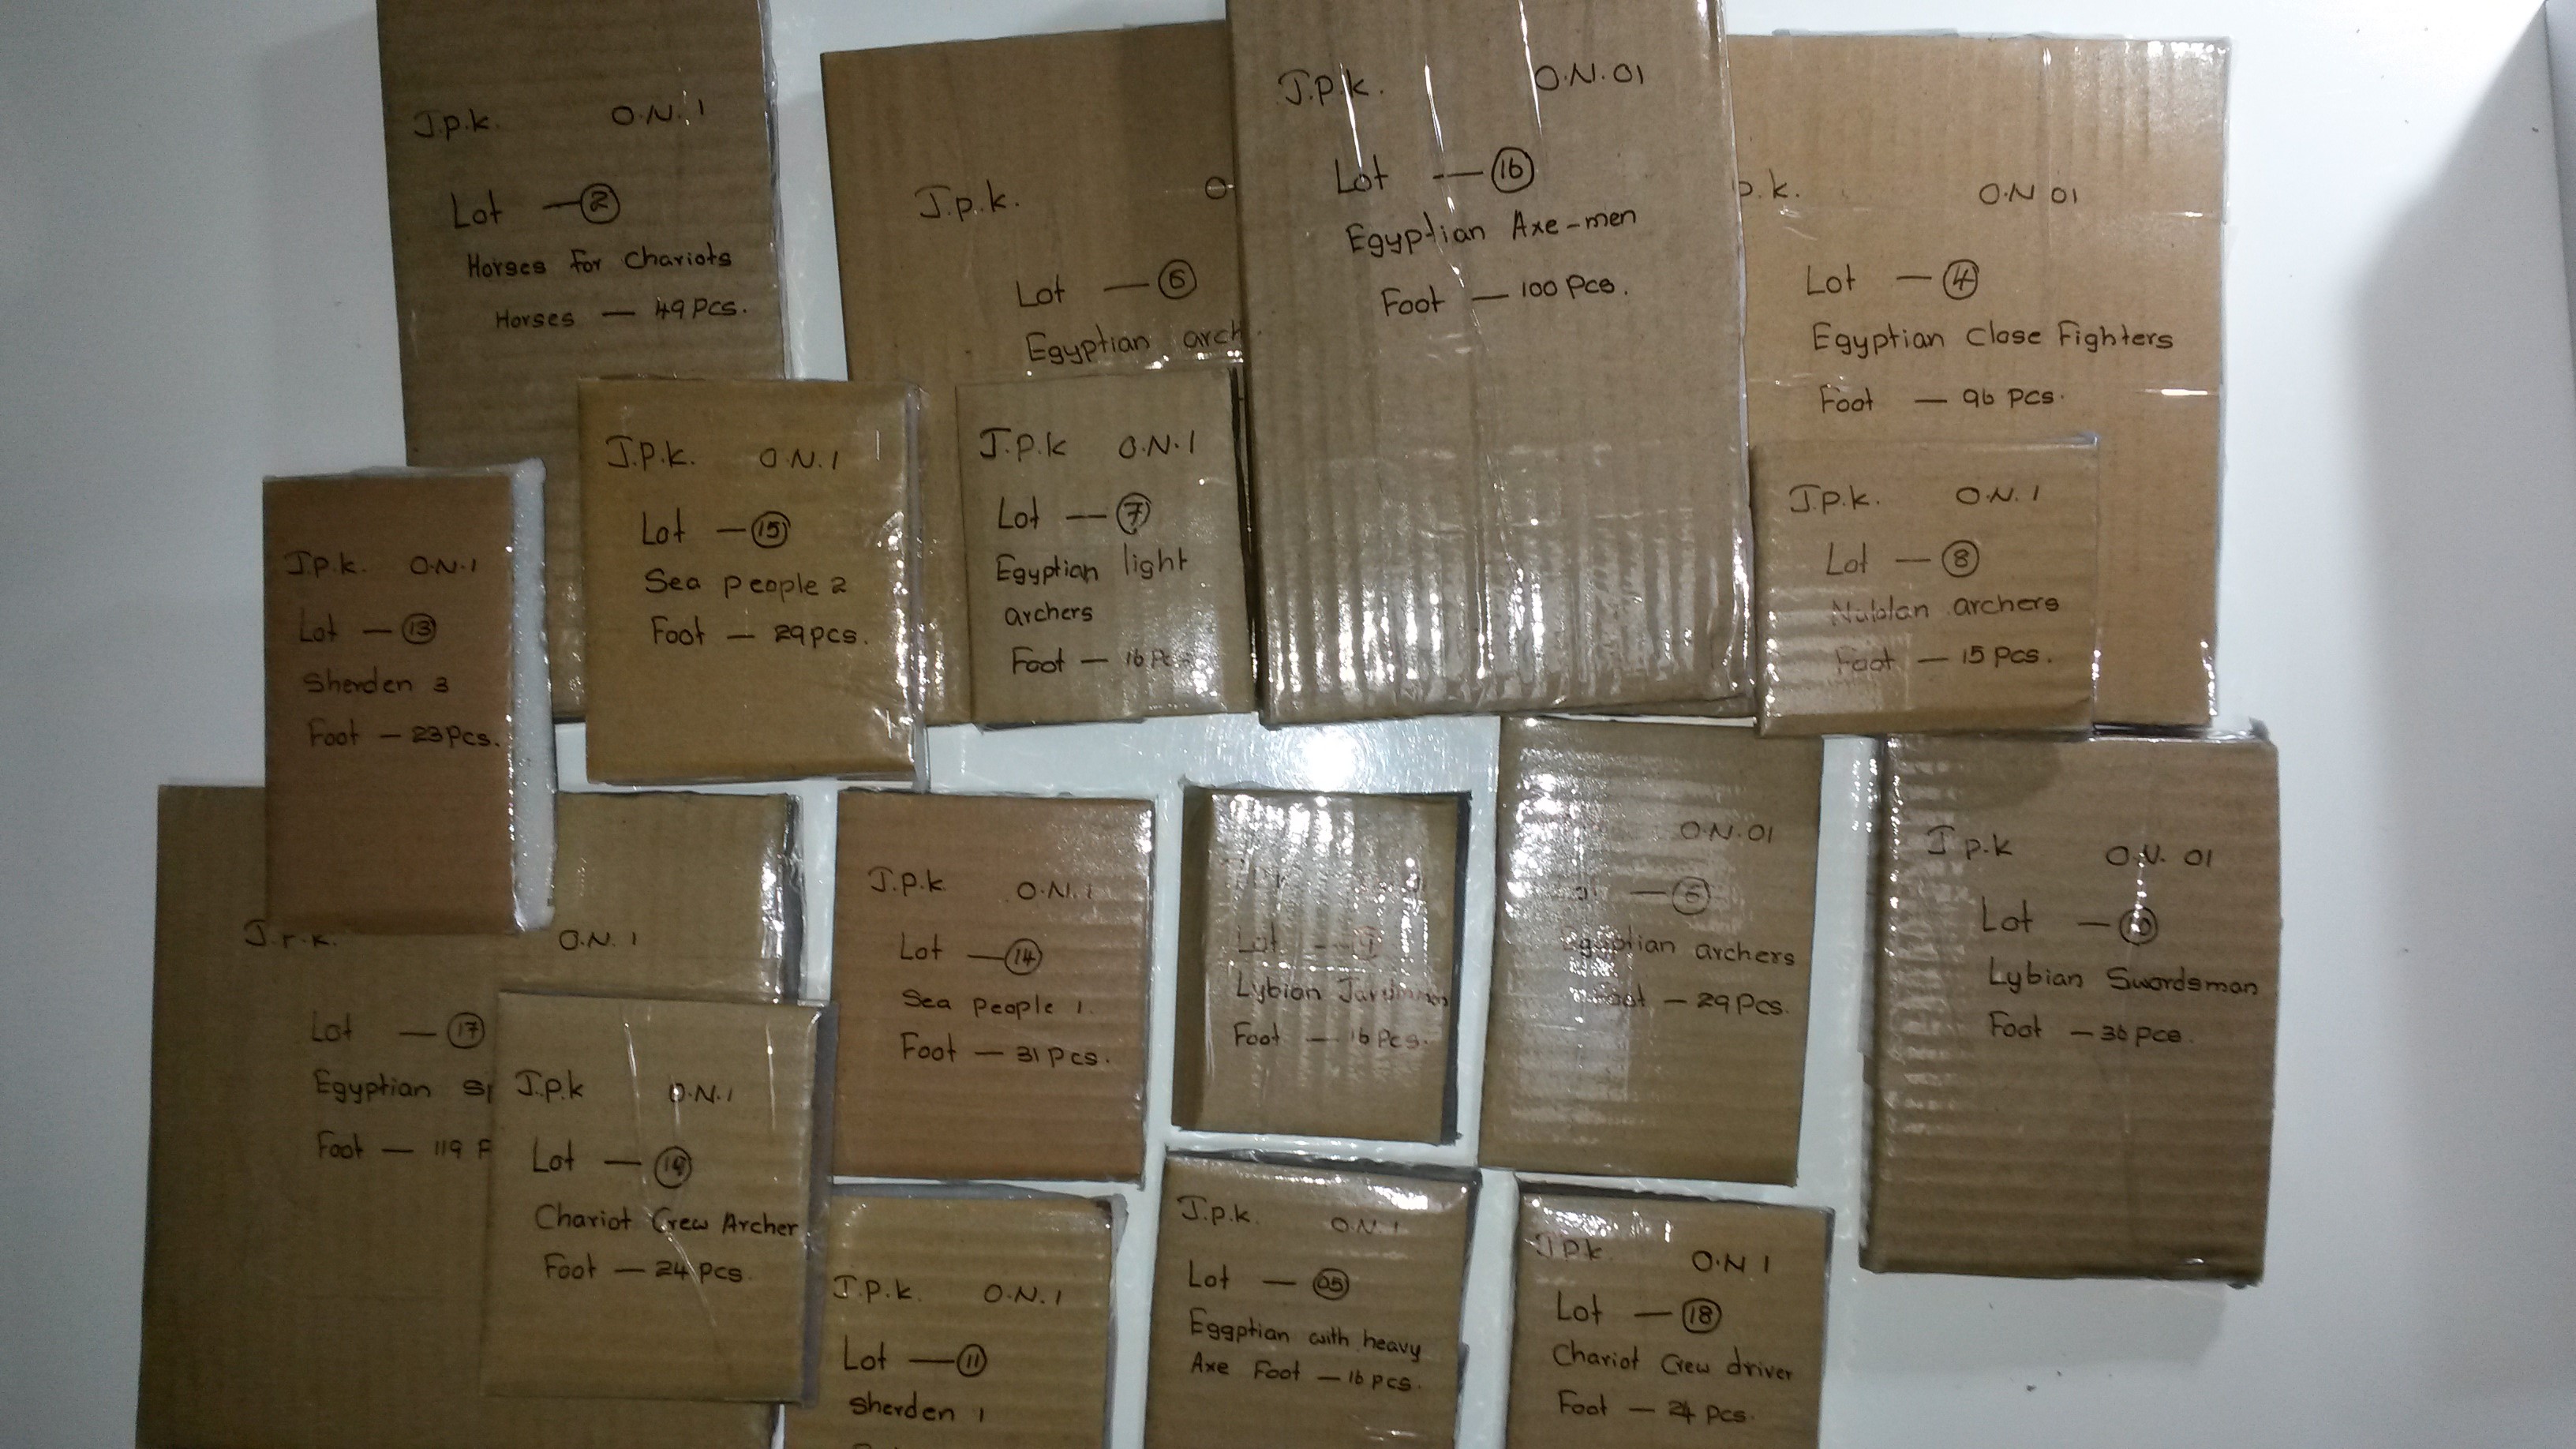 J.p.k. O.N.1
Lot — 2
Horses for Chariots
Horses — 49 Pcs.
J.p.k.
Lot — 6
Egyptian arch
J.p.k. O.N.01
Lot — 16
Egyptian Axe-men
Foot — 100 Pcs.
p.k. O.N 01
Lot — 4
Egyptian Close Fighters
Foot — 96 pcs.
J.p.k. O.N.1
Lot — 13
Sherden 3
Foot — 23 Pcs.
J.P.k. O.N.1
Lot — 15
Sea people 2
Foot — 29 pcs.
J.P.k O.N.1
Lot — 7
Egyptian light
archers
Foot — 16
J.p.k. O.N.1
Lot — 8
archers
Foot — 15 pcs.
O.N.1
Lot — 17
Egyptian
Foot — 119
J.p.k O.N.1
Lot — 19
Chariot Crew Archer
Foot — 24 pcs.
J.p.k. O.N.1
Lot — 14
Sea people 1.
Foot — 31 pcs.
Lot
Lybian
Foot — 16 Pcs.
O.N.01
Egyptian archers
Foot — 29 Pcs.
J p.k O.N. 01
Lot — 10
Lybian Swordsman
Foot — 36 pcs.
J.p.k. O.N.1
Lot — 11
Sherden 1
J.p.k. O.N.1
Lot — 05
Eggptian with heavy
Axe Foot — 16 pcs.
J.p.k. O.N 1
Lot — 18
Chariot Crew driver
Foot — 24 pcs.